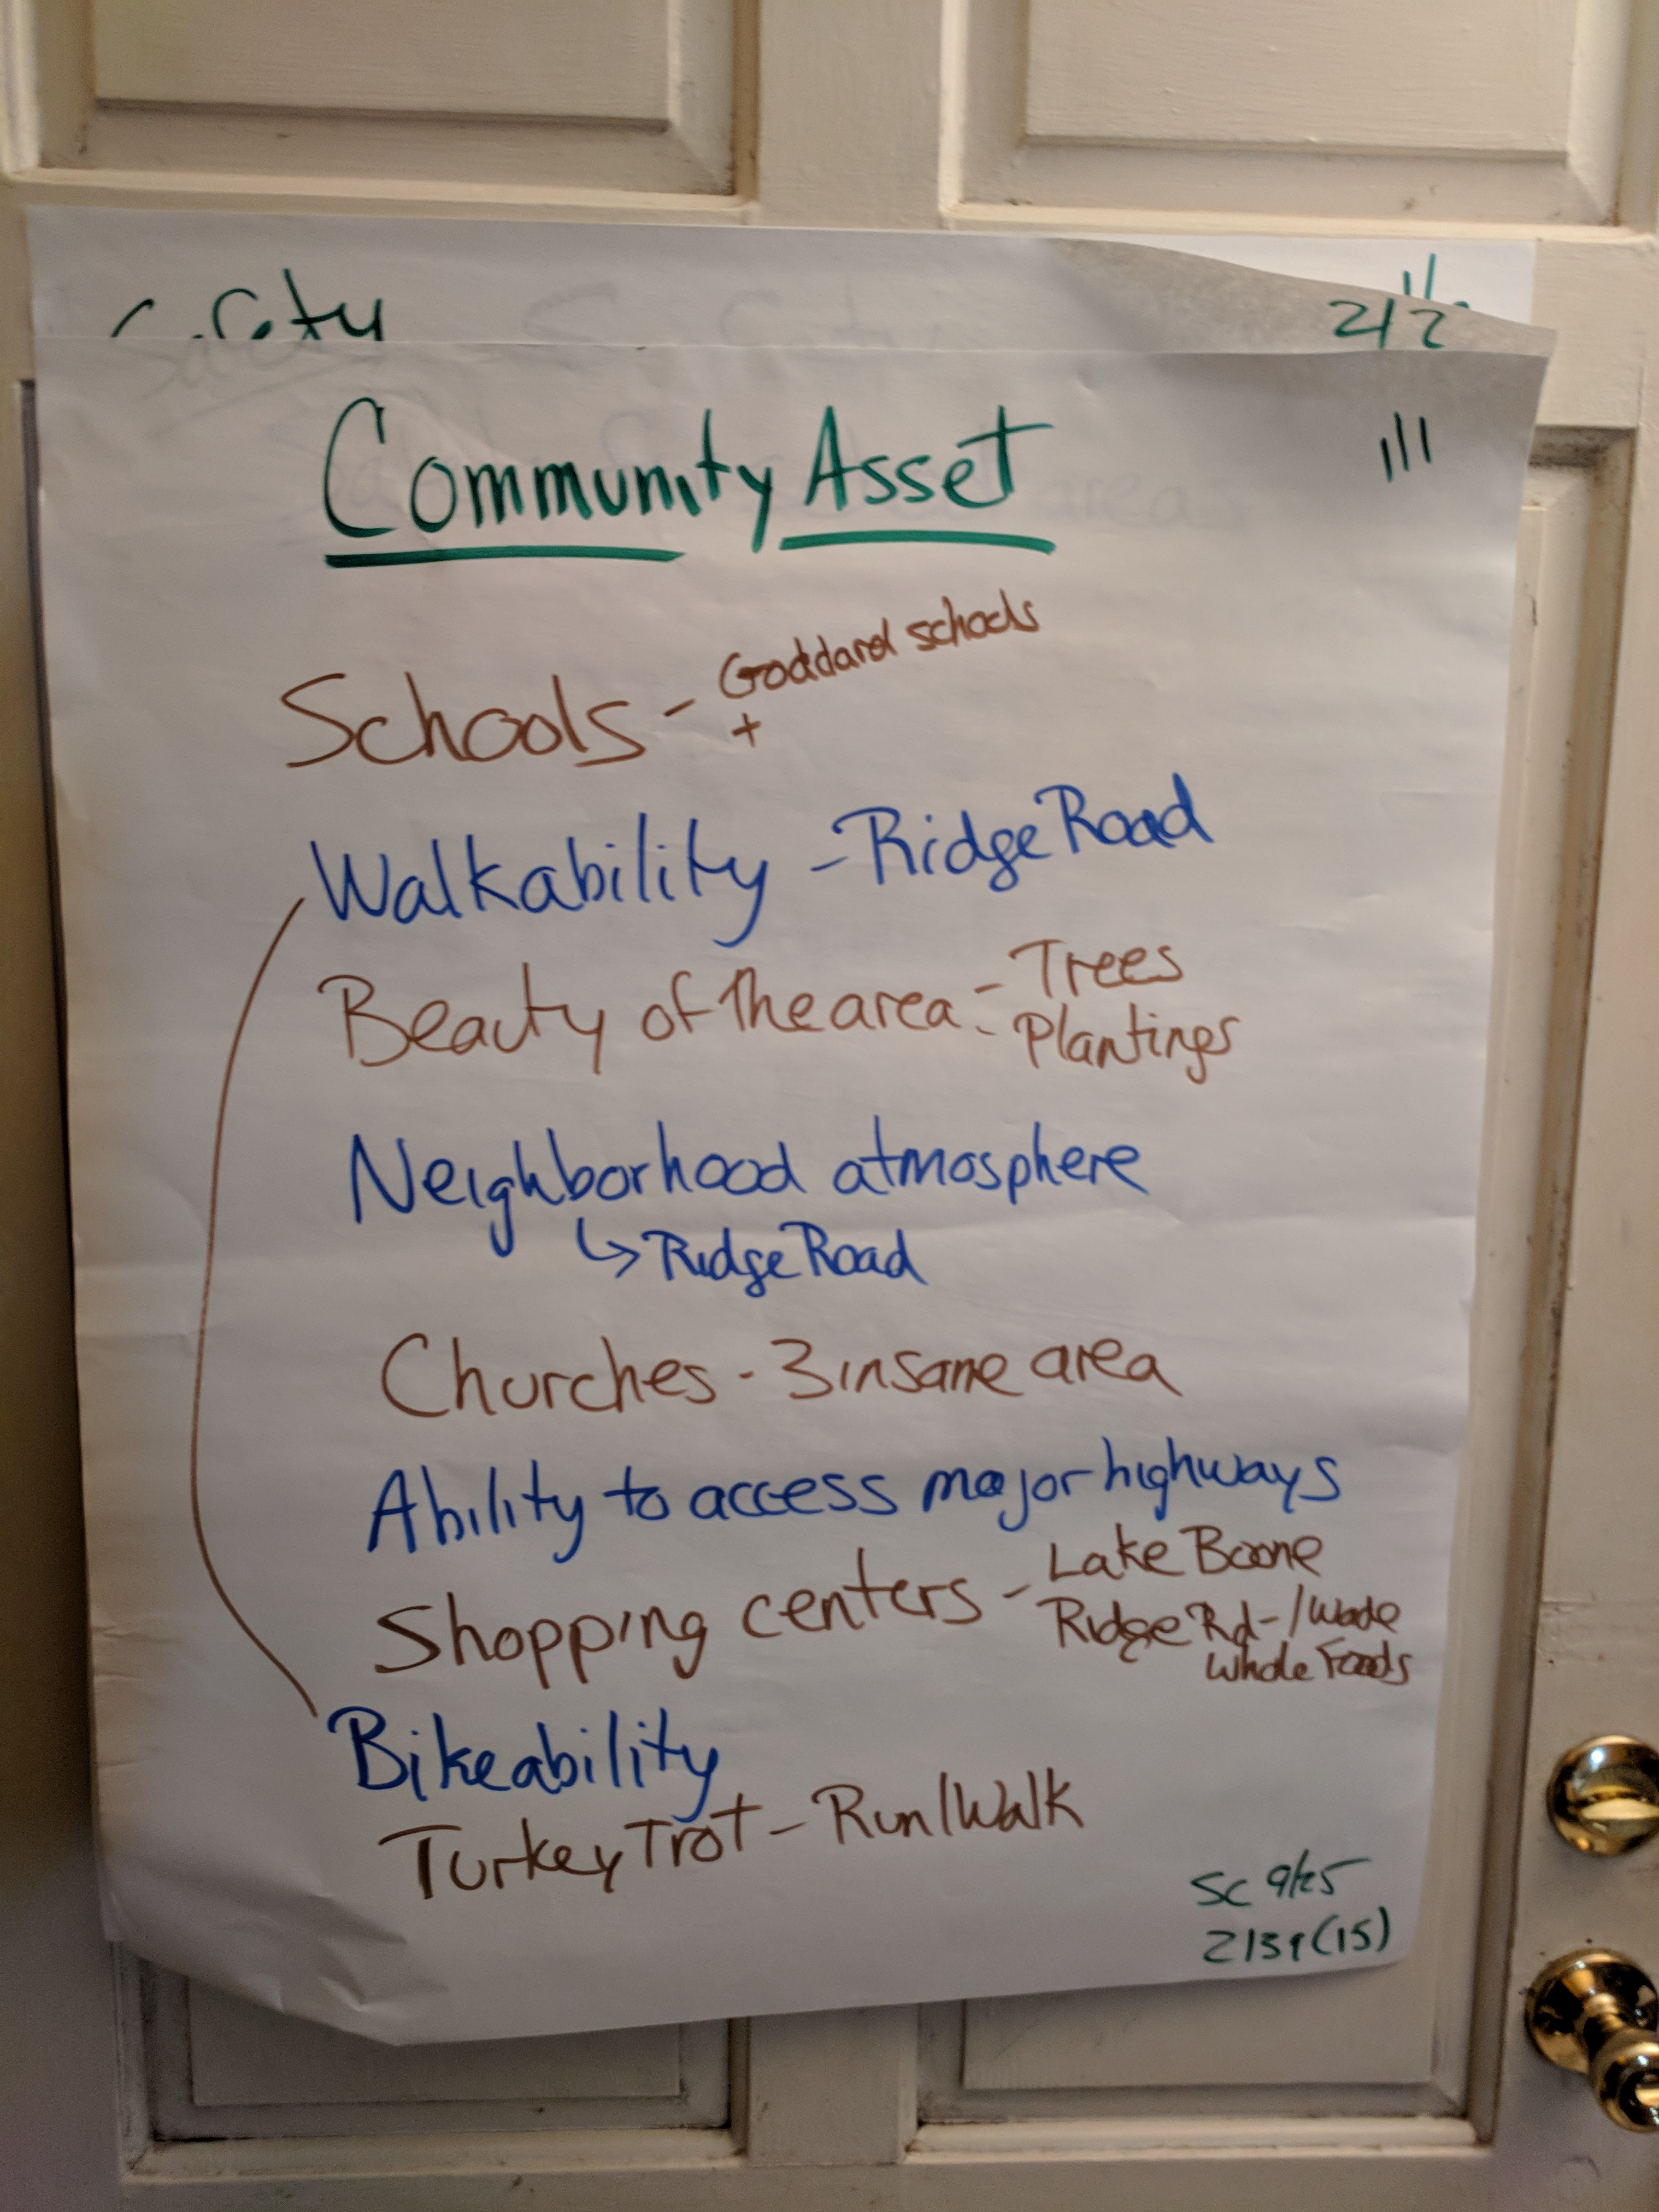 Safety
Community Asset
Schools - Goddard schools
+
Walkability - Ridge Road
Beauty of the area - Trees
- Plantings
Neighborhood atmosphere
↳ Ridge Road
Churches - 3 in same area
Ability to access major highways
Shopping centers - Lake Boone
Ridge Rd - / Wade
Whole Foods
Bikeability
Turkey Trot - Run/Walk
SC 9/25